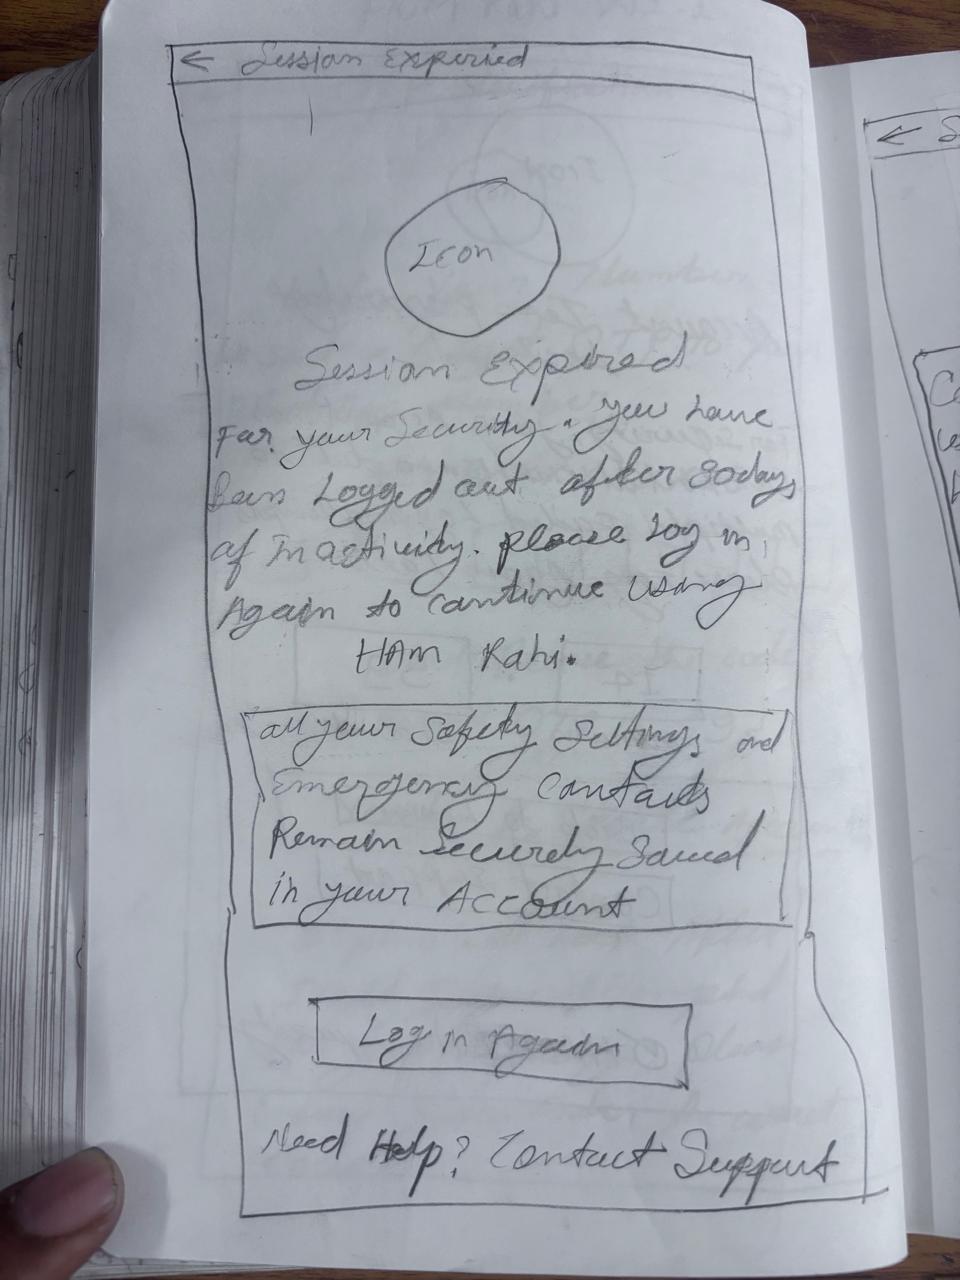 ← Session Experied
Icon
Session Expired
For your Security. you have
been Logged out after 30 days
of Inactivity. please Log in,
Again to continue using
HAm Rahi.
all your Safety Settings and
Emergency Contacts
Remain Securely Saved
in your Account
Log in Again
Need Help? Contact Support
←